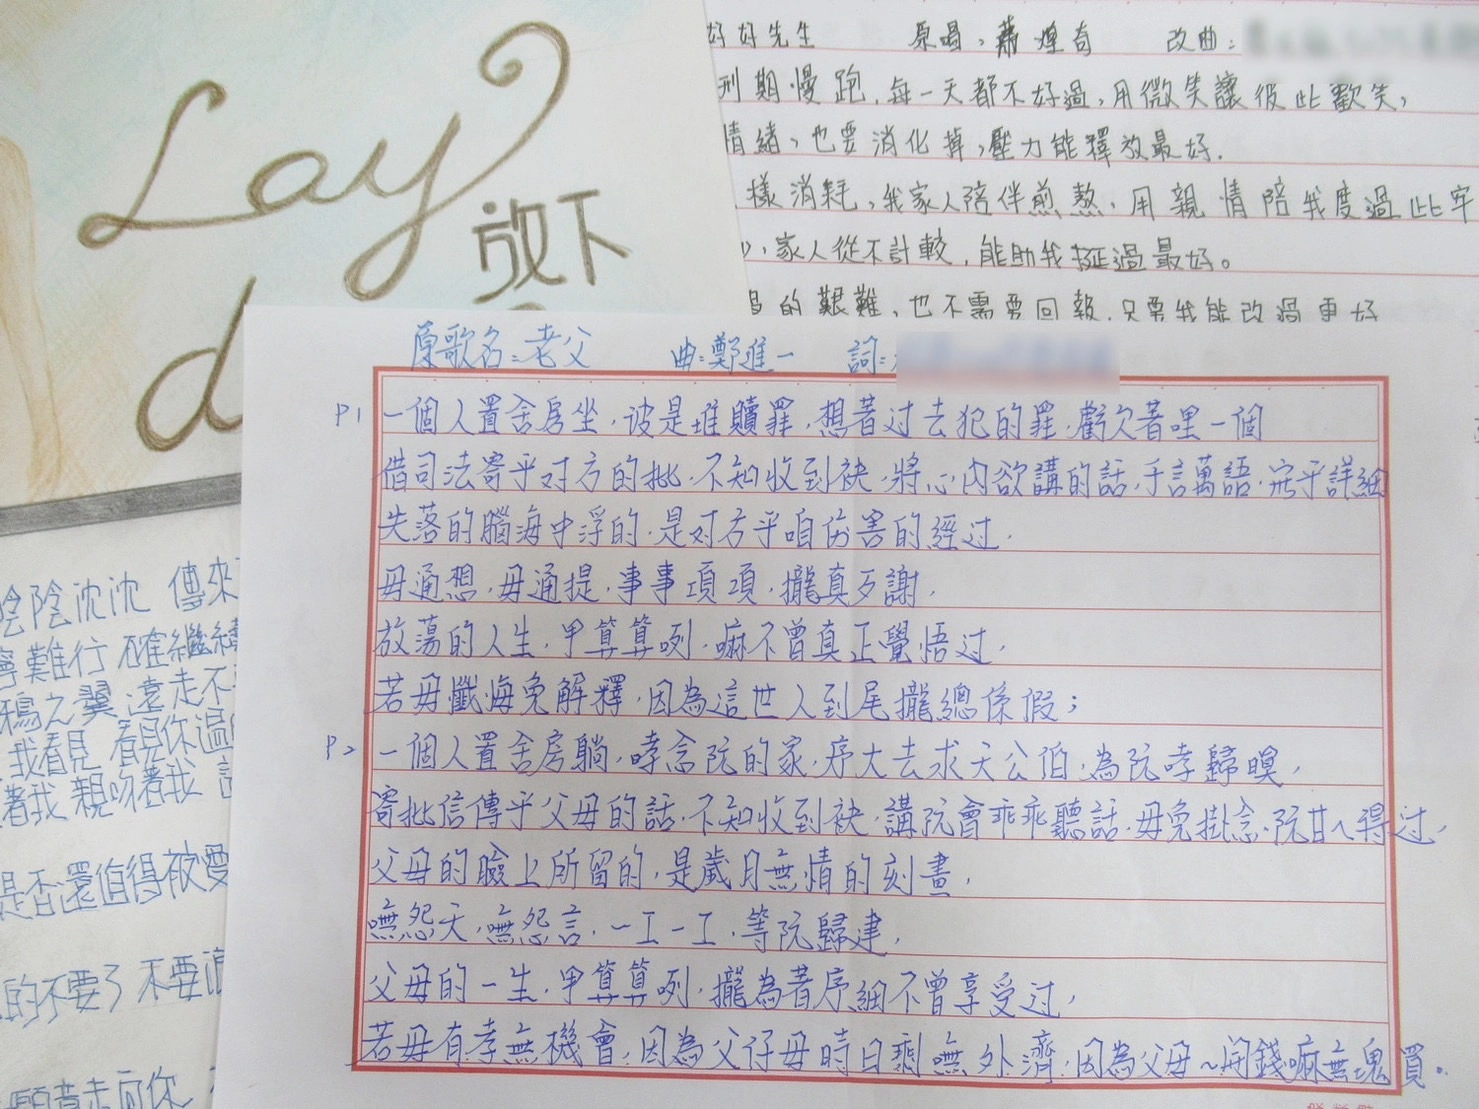 Lay
放下
d
好好先生 原唱:蕭煌奇 改曲:
刑期慢跑,每一天都不好過,用微笑讓彼此歡笑,
情緒,也要消化掉,壓力能釋放最好.
樣消耗,我家人陪伴煎熬,用親情陪我度過此牢
家人從不計較,能助我挺過最好。
的艱難,也不需要回報.只要我能改過更好
原歌名:老父 曲:鄭進一 詞:
P1 一個人置舍房坐,彼是堆贖罪,想著过去犯的罪,虧欠著哩一個
借司法寄乎对方的批,不知收到袂,將心內欲講的話,千言萬語,完乎詳細
失落的腦海中浮的,是对方乎咱伤害的經过,
毋通想,毋通提,事事項項,攏真歹謝,
放蕩的人生,甲算算咧,嘛不曾真正覺悟过,
若毋懺悔免解釋,因為這世人到尾攏總係假;
P2 一個人置舍房躺,哮念阮的家,序大去求天公伯,為阮哮歸暝,
寄批信傳乎父母的話,不知收到袂,講阮會乖乖聽話,毋免掛念,阮甘ㄟ得过,
父母的臉上所留的,是歲月無情的刻畫,
嘸怨天,嘸怨言,一工一工,等阮歸建,
父母的一生,甲算算咧,攏為著序細不曾享受过,
若毋有孝無機會,因為父仔母時日剩嘸外濟,因為父母~用錢嘛無塊買。
陰陰沈沈 傳來
難行 確繼續
鴉之翼 遠走不
我看見 看見你溫
著我 親吻著我
是否還值得被愛
的不要了 不要
願意走向你